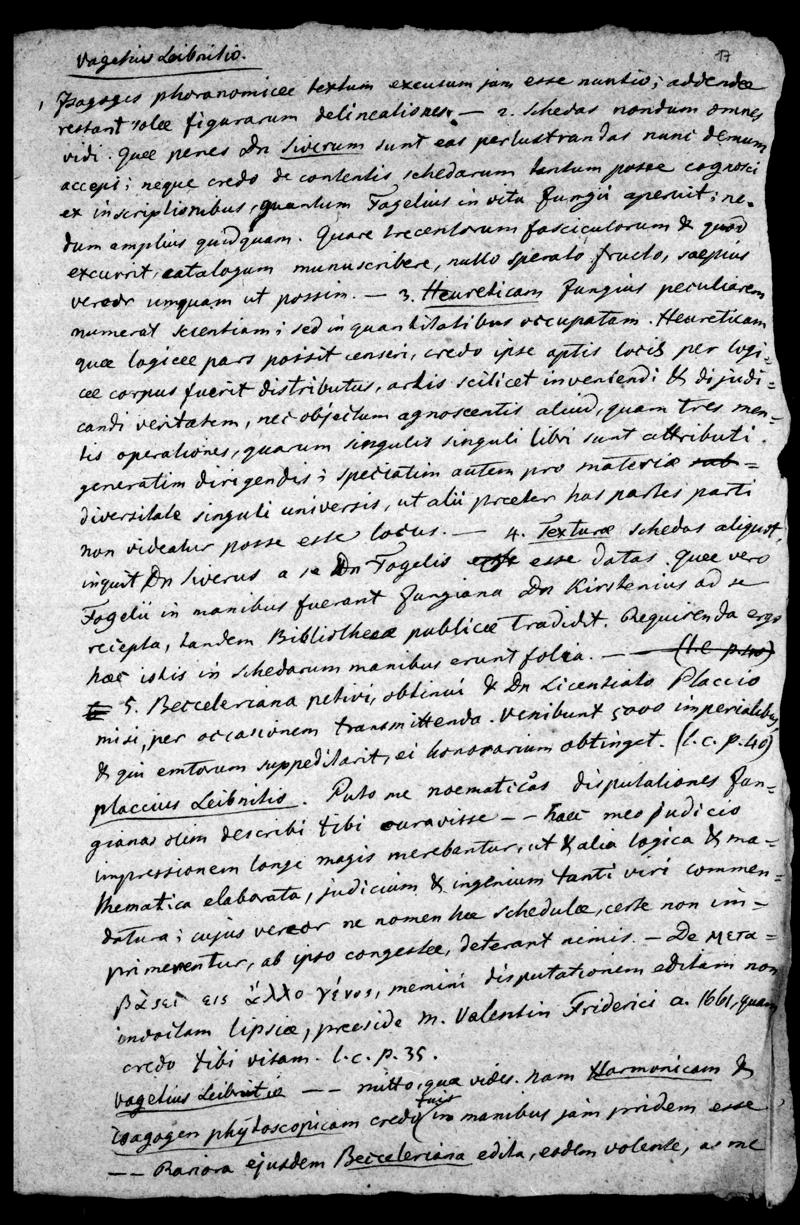 Vagetius Leibnitio.
17
1 Isagoges phoranomicae textum excusum jam esse nuntio; addendae
restant solae figurarum delineationes. — 2. Schedas nondum omnes
vidi. Quae penes Dn Siverum sunt eas perlustrandas nunc demum
accepi; neque credo de contentis schedarum tantum posse cognosci
ex inscriptionibus, quantum Fogelius in vita Jungii aperuit; ne-
dum amplius quidquam. Quare trecentorum fasciculorum & quod
excurrit, catalogum munuscribere, nullo sperato fructo, saepius
vereor umquam ut possim. — 3. Heureticam Jungius peculiarem
numerat scientiam; sed in quantitatibus occupatam. Heureticam
quae logicae pars possit censeri, credo ipse aptis locis per logi-
cae corpus fuerit distributus, artis scilicet inveniendi & dijudi-
candi veritatem, nec objectum agnoscentis aliud, quam tres men-
tis operationes, quarum singulis singuli libri sunt attributi.
generatim dirigendis; speciatim autem pro materiae sub-
diversitate singuli universis, ut alii praeter has partes parti
non videatur posse esse locus. — 4. Texturae schedas aliquot,
inquit Dn Siverus a se Dn Fogelio esse datas. Quae vero
Fogelii in manibus fuerant Jungiana Dn Kirstenius ad se
recepta, tandem Bibliothecae publicae tradidit. Requirenda ergo
haec istis in schedarum manibus erunt folia. — (l.c. p.40)
5. Becceleriana petivi, obtinui & Dn Licentiato Placcio
misi, per occasionem transmittenda. Venibunt 5000 imperialibus,
& qui emtorum suppeditarit, ei honorarium obtinget. (l.c. p.40)
Placcius Leibnitio. Puto me noematicas disputationes Jun-
gianas olim describi tibi curavisse — — haec meo judicio
impressionem longe magis merebantur, ut & alia logica & ma-
thematica elaborata, judicium & ingenium tanti viri commen-
datura; cujus vereor ne nomen hae schedulae, certe non im-
primeventur, ab ipso congestae, deterant nimis. — De μετα-
βάσει εις άλλο γένος, memini disputationem editam non
indoctam Lipsiae, praeside M. Valentin Friderici a. 1661, quam
credo tibi visam. l.c. p.35.
Vagetius Leibnitio — — mitto, quae vides. nam Harmonicam &
Isagogen phytoscopicam credo tuis in manibus jam pridem esse
— — Rariora ejusdem Becceleriana edita, eodem volente, ac me